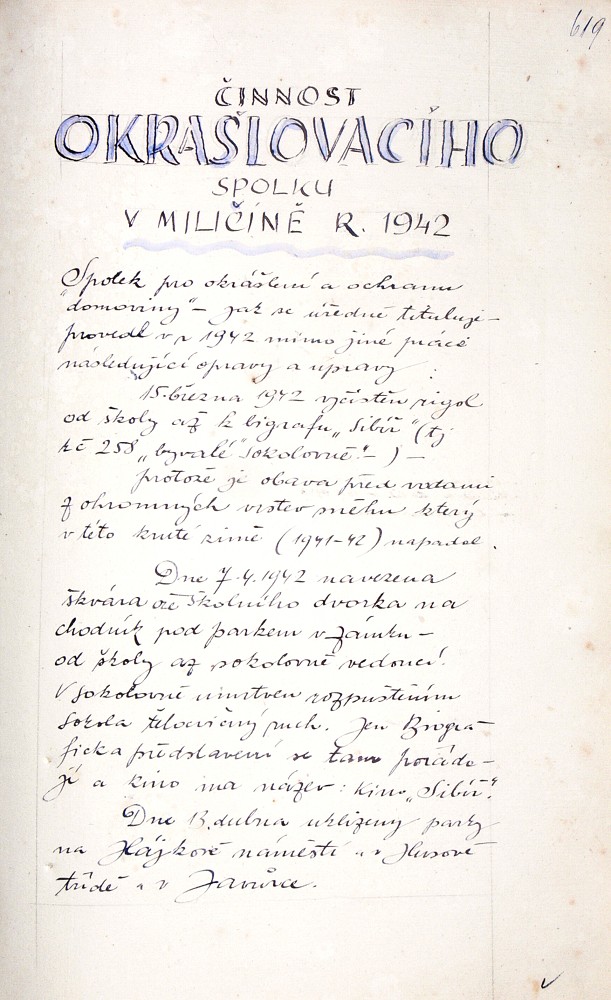 619
ČINNOST
OKRAŠLOVACÍHO
SPOLKU
V MILIČÍNĚ R. 1942
Spolek pro okrášlení a ochranu
"domoviny" – jak se úředně tituluje –
provedl v r 1942 mimo jiné práce
následující opravy a úpravy :
15. března 1942 vyčistěn rigol
od školy až k bigrafu „Sibiř" (tj
če 258 „bývalé sokolovně" – ) –
protože je obava před vodami
z ohromných vrstev sněhu který
v této kruté zimě (1941-42) napadal.
Dne 7.4.1942 navezena
škvára ze školního dvorka na
chodník pod parkem v Zámku –
od školy až sokolovně vedoucí.
V sokolovně umrtven rozpuštěním
Sokola tělocvičný ruch. Jen Biogra-
fická představení se tam pořáda-
jí a kino má název: kino „Sibiř".
Dne 13. dubna uklizeny parky
na Hájkově náměstí a v Husově
třídě a v Javůrce.